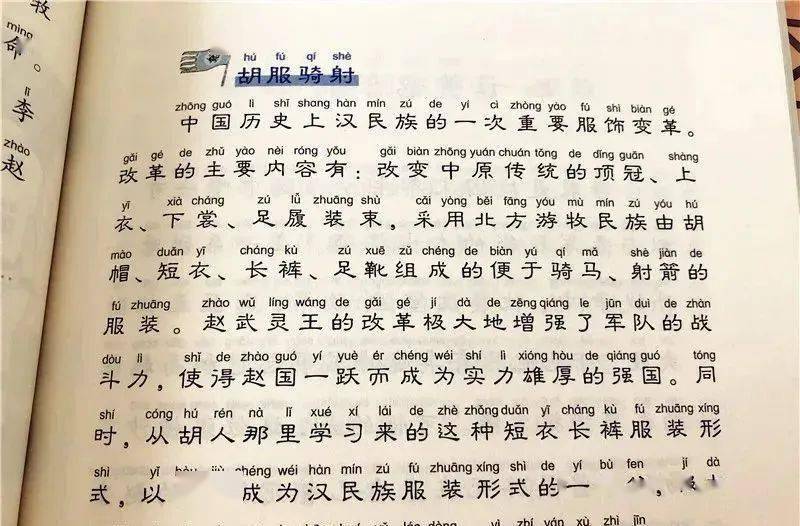 牧
mìng
命。
lǐ
李
zhào
赵
hú fú qí shè
胡服骑射
zhōng guó lì shǐ shang hàn mín zú de yí cì zhòng yào fú shì biàn gé
中国历史上汉民族的一次重要服饰变革。
gǎi gé de zhǔ yào nèi róng yǒu gǎi biàn zhōng yuán chuán tǒng de dǐng guān shàng
改革的主要内容有：改变中原传统的顶冠、上
yī xià cháng zú lǚ zhuāng shù cǎi yòng běi fāng yóu mù mín zú yóu hú
衣、下裳、足履装束，采用北方游牧民族由胡
mào duǎn yī cháng kù zú xuē zǔ chéng de biàn yú qí mǎ shè jiàn de
帽、短衣、长裤、足靴组成的便于骑马、射箭的
fú zhuāng zhào wǔ líng wáng de gǎi gé jí dà de zēng qiáng le jūn duì de zhàn
服装。赵武灵王的改革极大地增强了军队的战
dòu lì shǐ de zhào guó yí yuè ér chéng wéi shí lì xióng hòu de qiáng guó tóng
斗力，使得赵国一跃而成为实力雄厚的强国。同
shí cóng hú rén nà lǐ xué xí lái de zhè zhǒng duǎn yī cháng kù fú zhuāng xíng
时，从胡人那里学习来的这种短衣长裤服装形
shì yǐ chéng wéi hàn mín zú fú zhuāng xíng shì de yí bù fen jí dà
式，以 成为汉民族服装形式的一